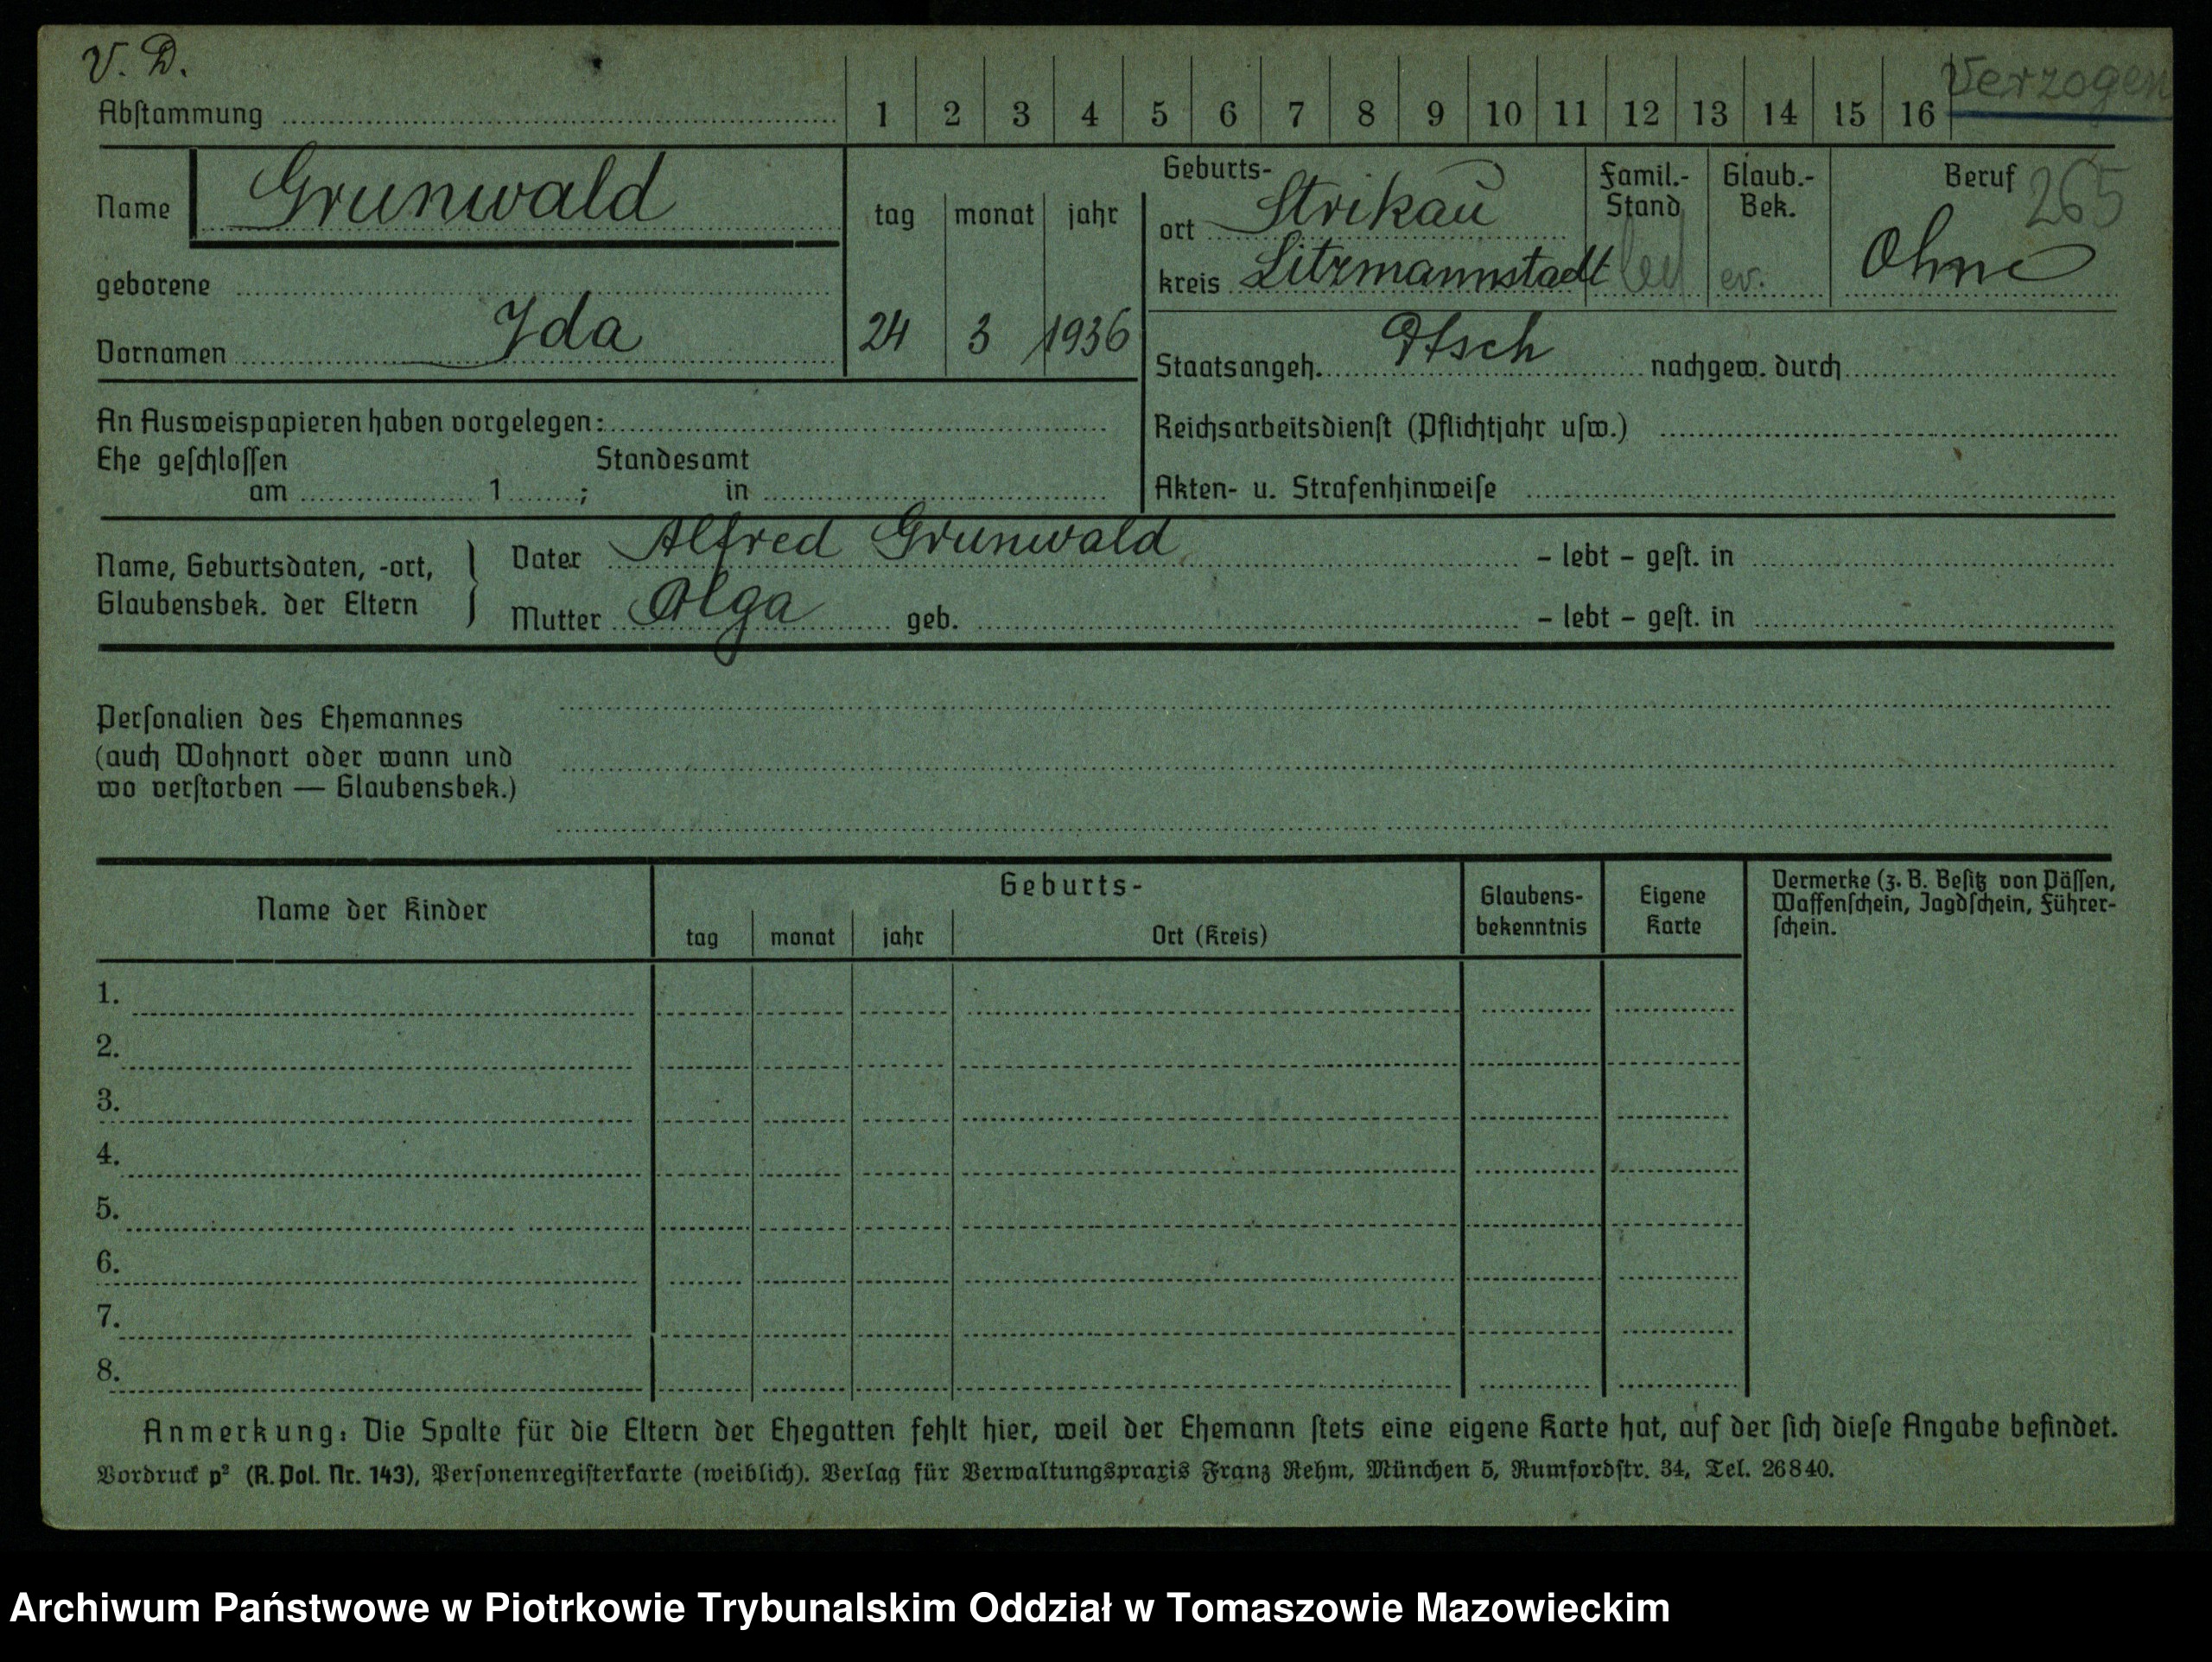 V. D.
Verzogen
Abstammung 1 2 3 4 5 6 7 8 9 10 11 12 13 14 15 16
Name Grunwald
tag monat jahr
Geburts-
ort Strikau
kreis Litzmannstadt
Famil.-
Stand
led
Glaub.-
Bek.
ev.
Beruf 265
Ohne
geborene
Vornamen Ida 24 3 1936
Staatsangeh. Dtsch nachgew. durch
An Ausweispapieren haben vorgelegen:
Reichsarbeitsdienst (Pflichtjahr usw.)
Ehe geschlossen Standesamt
am 1 ; in
Akten- u. Strafenhinweise
Name, Geburtsdaten, -ort,
Glaubensbek. der Eltern
Vater Alfred Grunwald – lebt – gest. in
Mutter Olga geb. – lebt – gest. in
Personalien des Ehemannes
(auch Wohnort oder wann und
wo verstorben — Glaubensbek.)
Name der Kinder
Geburts-
tag monat jahr Ort (Kreis)
Glaubens-
bekenntnis
Eigene
Karte
Vermerke (z. B. Besitz von Pässen,
Waffenschein, Jagdschein, Führer-
schein.
1.
2.
3.
4.
5.
6.
7.
8.
Anmerkung: Die Spalte für die Eltern der Ehegatten fehlt hier, weil der Ehemann stets eine eigene Karte hat, auf der sich diese Angabe befindet.
Vordruck p² (R. Pol. Nr. 143), Personenregisterkarte (weiblich). Verlag für Verwaltungspraxis Franz Rehm, München 5, Rumfordstr. 34, Tel. 26840.
Archiwum Państwowe w Piotrkowie Trybunalskim Oddział w Tomaszowie Mazowieckim